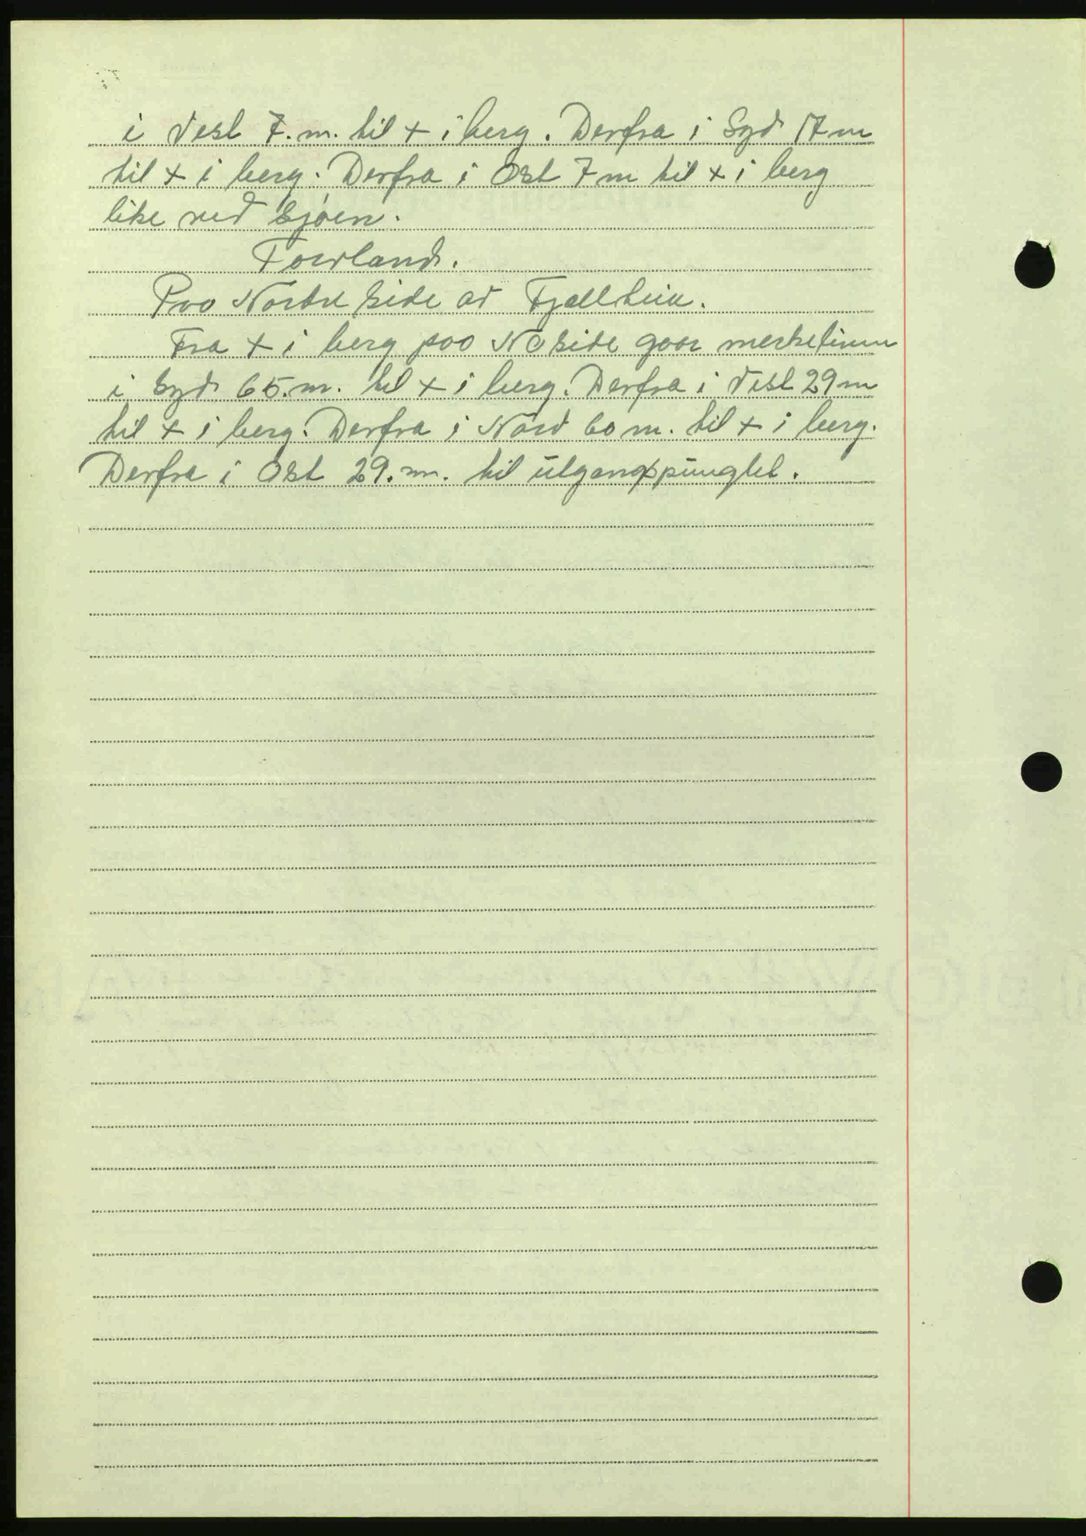 i Vest 7. m. til + i berg. Derfra i Syd 17 m
til + i berg. Derfra i Øst 7 m til + i berg
like ved Sjøen.
Torvland.
Paa Nordre Side av Fjellheia.
Fra + i berg paa NØ side gaar merkelinnen
i Syd 65. m. til + i berg. Derfra i Vest 29 m
til + i berg. Derfra i Nord 60 m. til + i berg.
Derfra i Øst 29. m. til utgangspungtet.